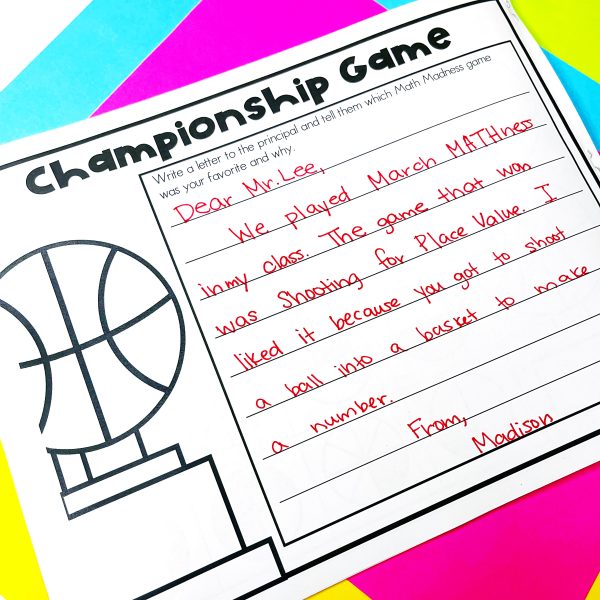 Championship Game
Write a letter to the principal and tell them which Math Madness game
was your favorite and why.
Dear Mr. Lee,
We played March MATHness
in my class. The game that won
was Shooting for Place Value. I
liked it because you got to shoot
a ball into a basket to make
a number.
From,
Madison